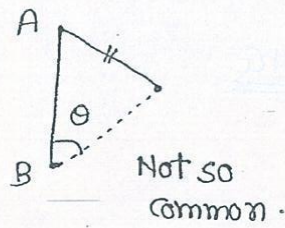 A
θ
B
Not so
common.